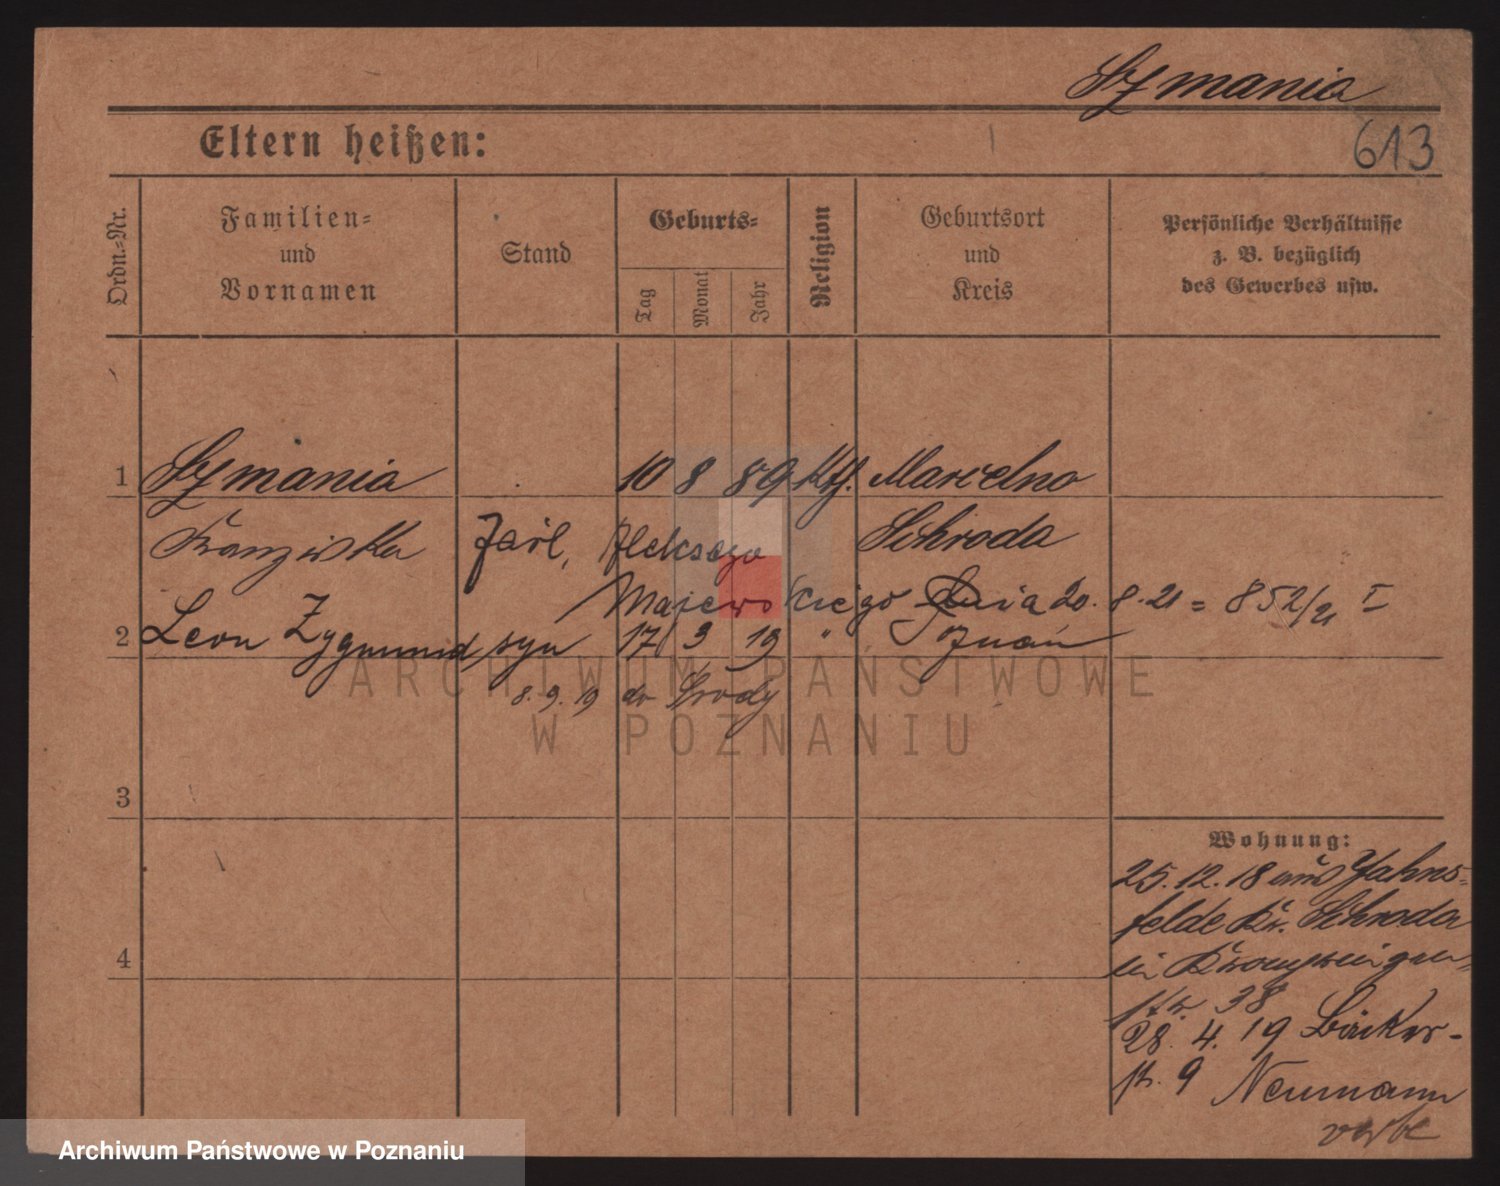 Szymania
Eltern heißen:
613
Ordn.-Nr.
Familien-
und
Vornamen
Stand
Geburts-
Tag
Monat
Jahr
Religion
Geburtsort
und
Kreis
Persönliche Verhältnisse
z. B. bezüglich
des Gewerbes usw.
1 Szymania 10 8 89 Kth. Marcelno
Franziska Aleksego Schroda
Majewskiego dnia 20. 8. 21 = 852/21 I
2 Leon Zygmund syn 17 3 19 " Poznań
8. 9. 19 do Środy
3
4
Wohnung:
25. 12. 18 aus Jahns-
felde Kr. Schroda
in Kronprinzen-
str. 38
28. 4. 19 Bäcker-
str. 9 Neumann
ARCHIWUM PAŃSTWOWE
W POZNANIU
Archiwum Państwowe w Poznaniu